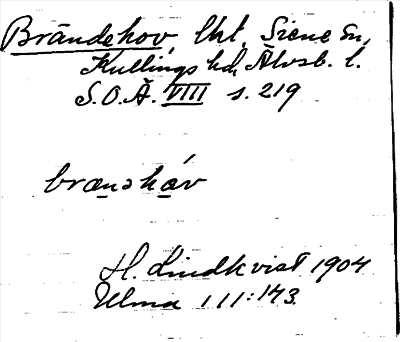 Brändehov, lht, Siene sn,
Kullings hd, Älvsb. l.
S.O.Ä. VIII s. 219
brænəháv
H. Lindkvist 1904
Ulma 111:143.